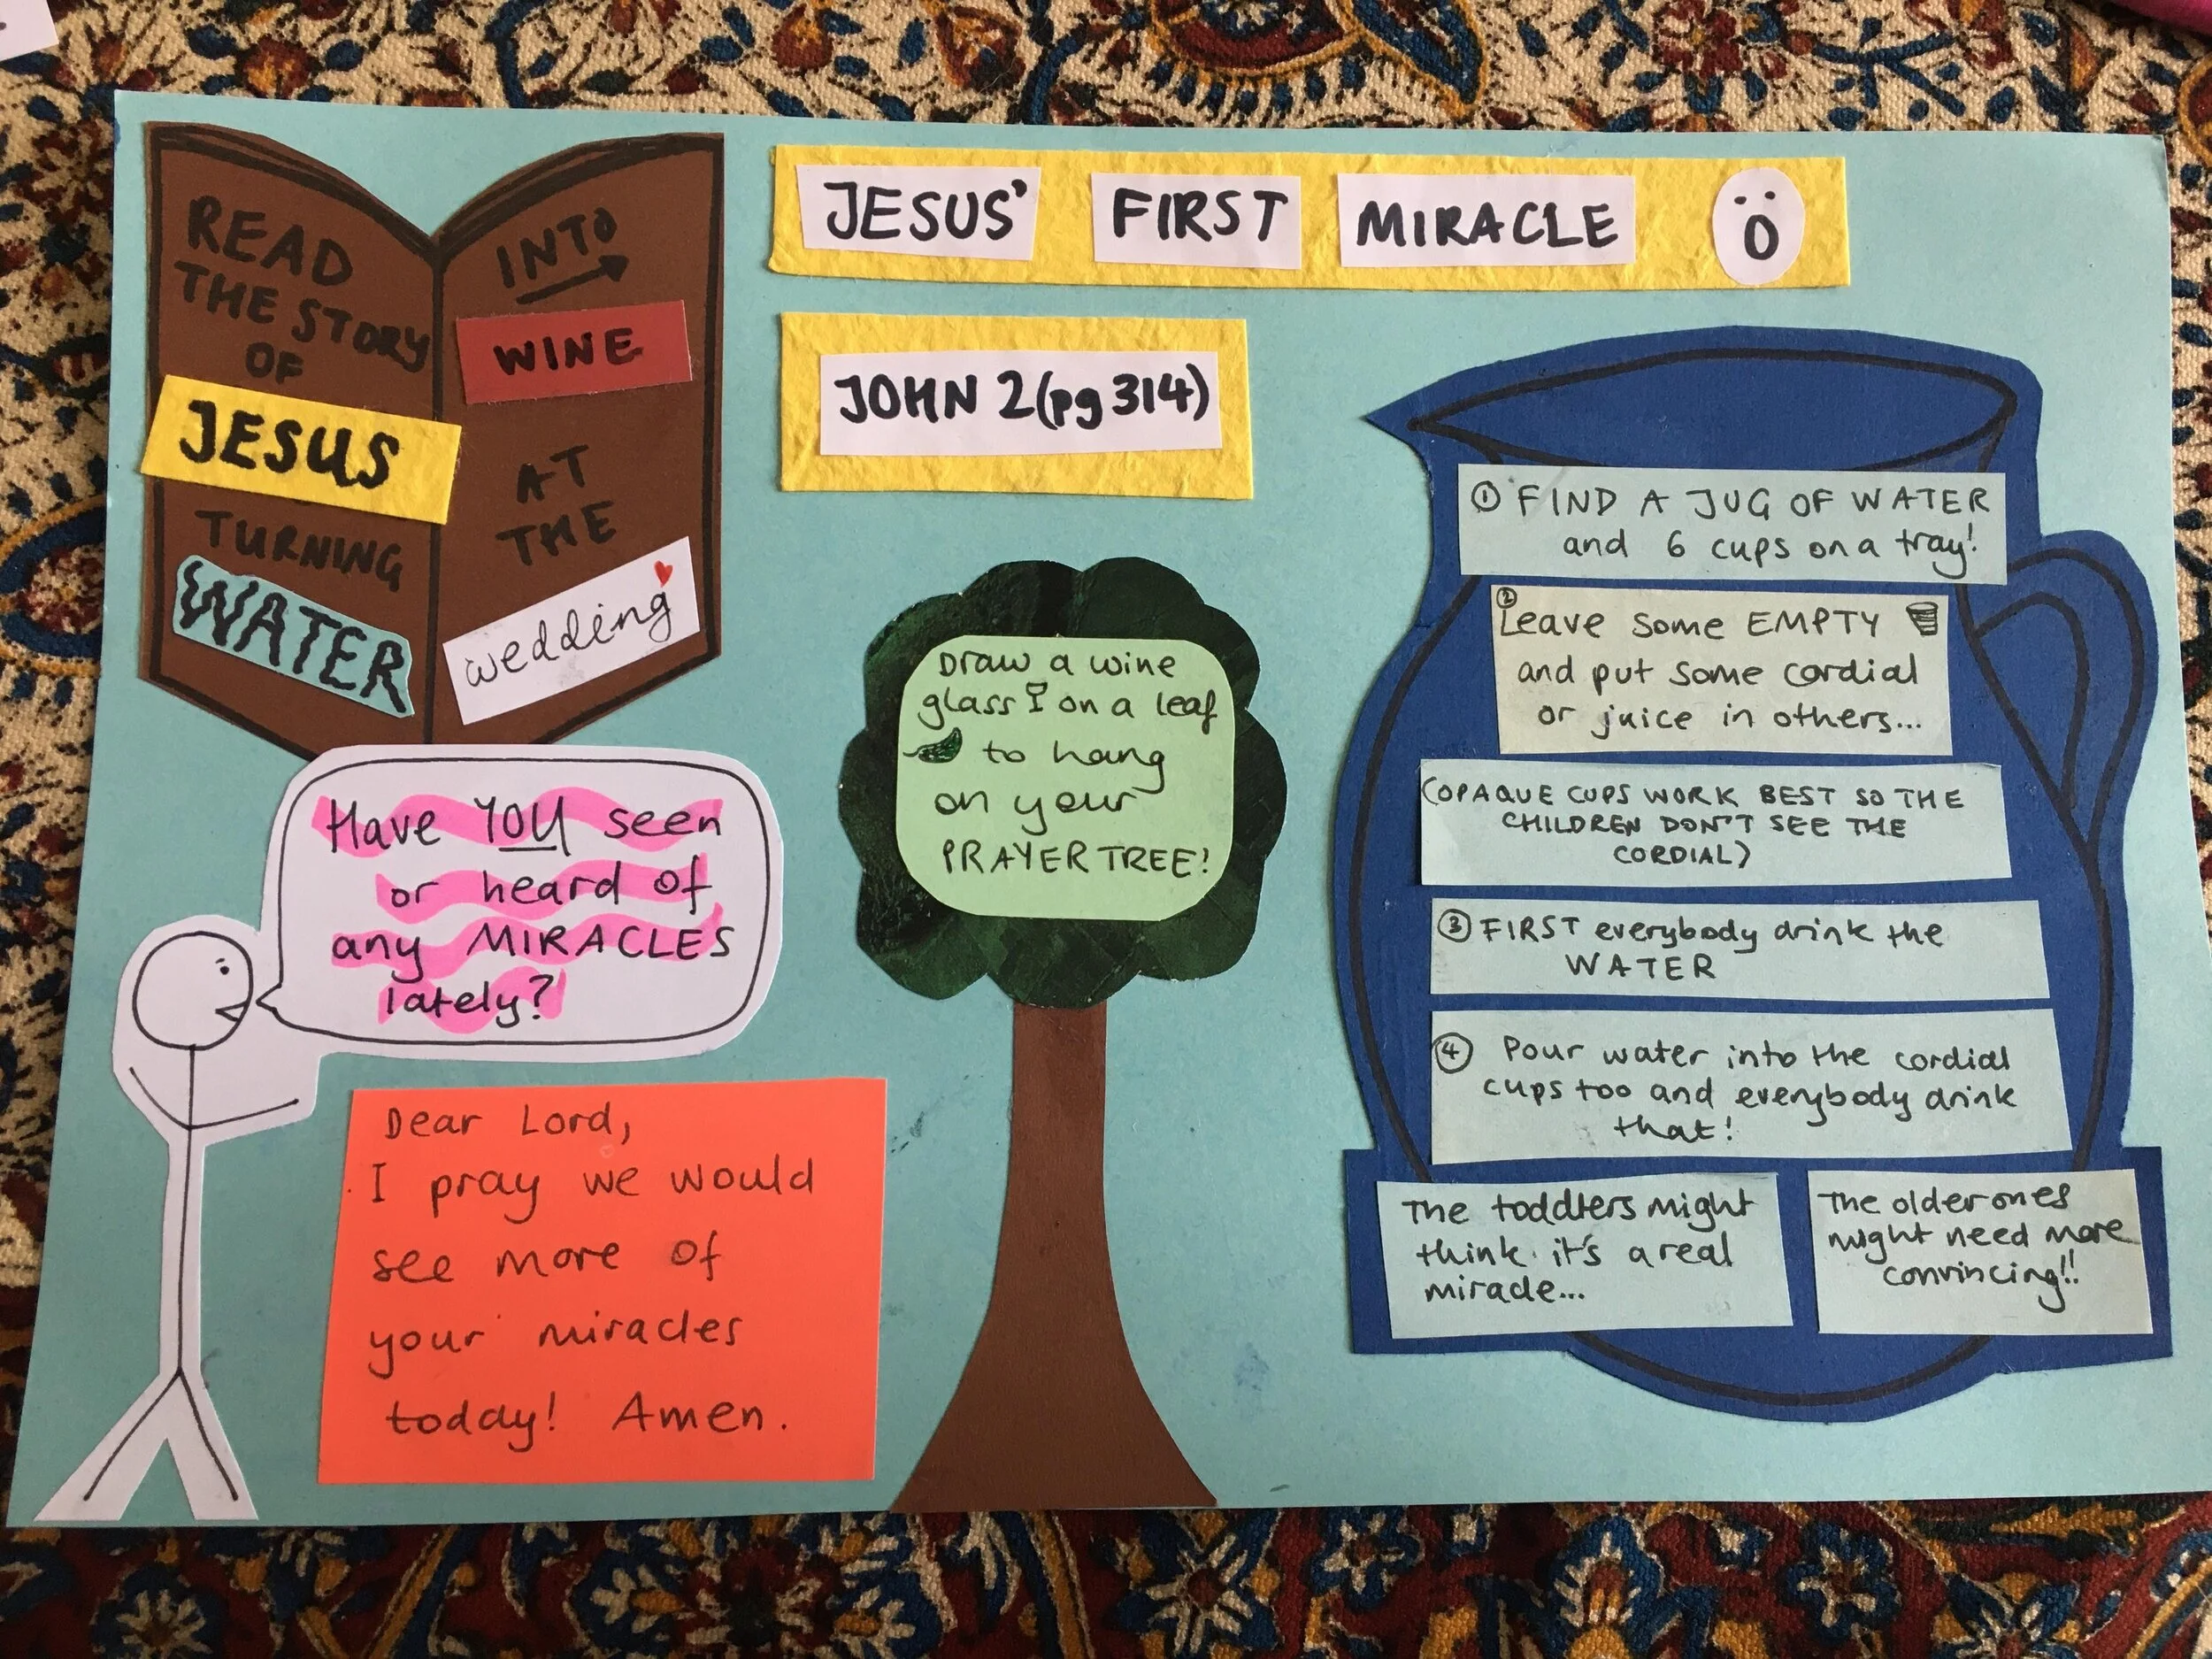 JESUS' FIRST MIRACLE
JOHN 2 (pg 314)
READ
THE STORY
OF
JESUS
TURNING
WATER
INTO
WINE
AT
THE
wedding
Have YOU seen
or heard of
any MIRACLES
lately?
Dear Lord,
I pray we would
see more of
your miracles
today! Amen.
Draw a wine
glass on a leaf
to hang
on your
PRAYER TREE!
① FIND A JUG OF WATER
and 6 cups on a tray!
② Leave some EMPTY
and put some cordial
or juice in others...
(OPAQUE CUPS WORK BEST SO THE
CHILDREN DON'T SEE THE
CORDIAL)
③ FIRST everybody drink the
WATER
④ Pour water into the cordial
cups too and everybody drink
that!
The toddlers might
think it's a real
miracle...
The older ones
might need more
convincing!!